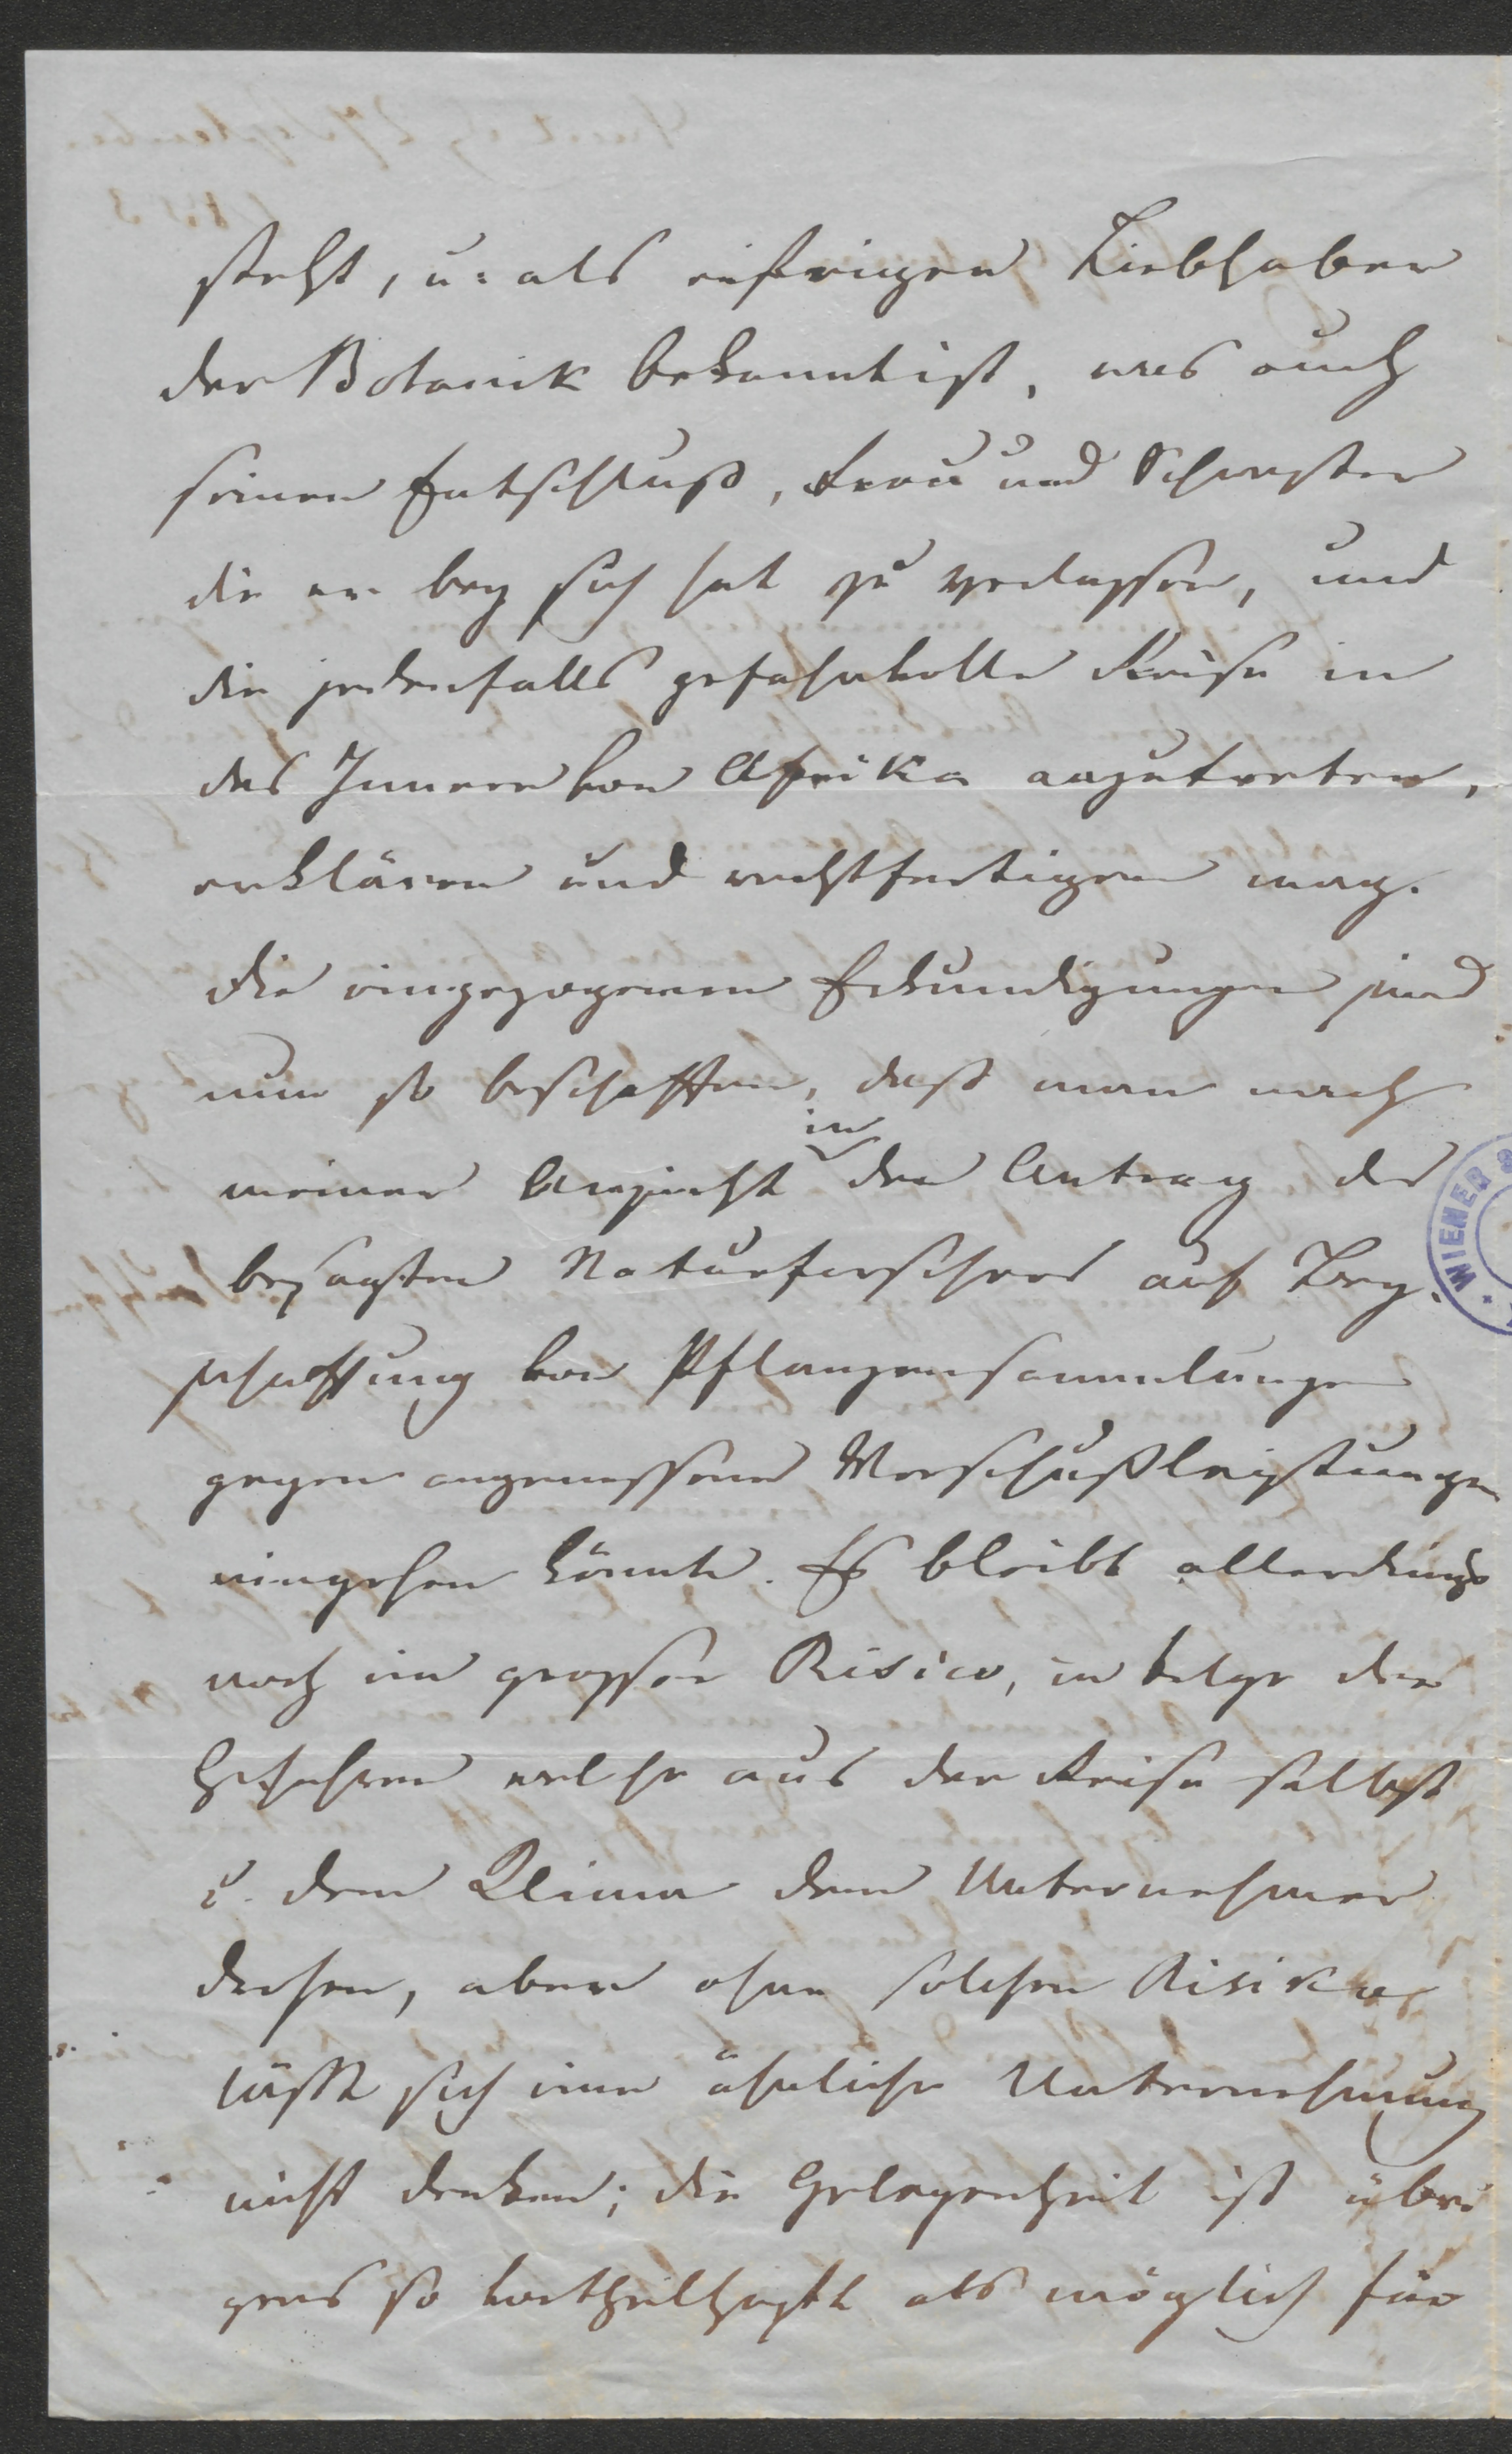 steht, u: als eifrigen Liebhaber
der Botanik bekannt ist, was auch
seinen Entschluß, Frau und Schwester
die er bey sich hat zu verlassen, und
die jedenfalls gefahrvolle Reise in
das Innere von Afrika anzutreten,
erklären und rechtfertigen mag.
Die eingezogenen Erkundigungen sind
nun so beschaffen, daß man nach
in
meiner Ansicht den Antrag des
besagten Naturforschers auf Bey-
schaffung von Pflanzensammlungen
gegen angemessene Vorschußleistungen
eingehen könnte. Es bleibt allerdings
noch ein grosser Risico, in Folge der
Gefahren welche aus der Reise selbst
u. dem Klima dem Unternehmer
drohen, aber ohne solchen Risiko
läßt sich eine ähnliche Unternehmung
nicht denken; die Gelegenheit ist übri
gens so vortheilhaft als möglich für
WIENER